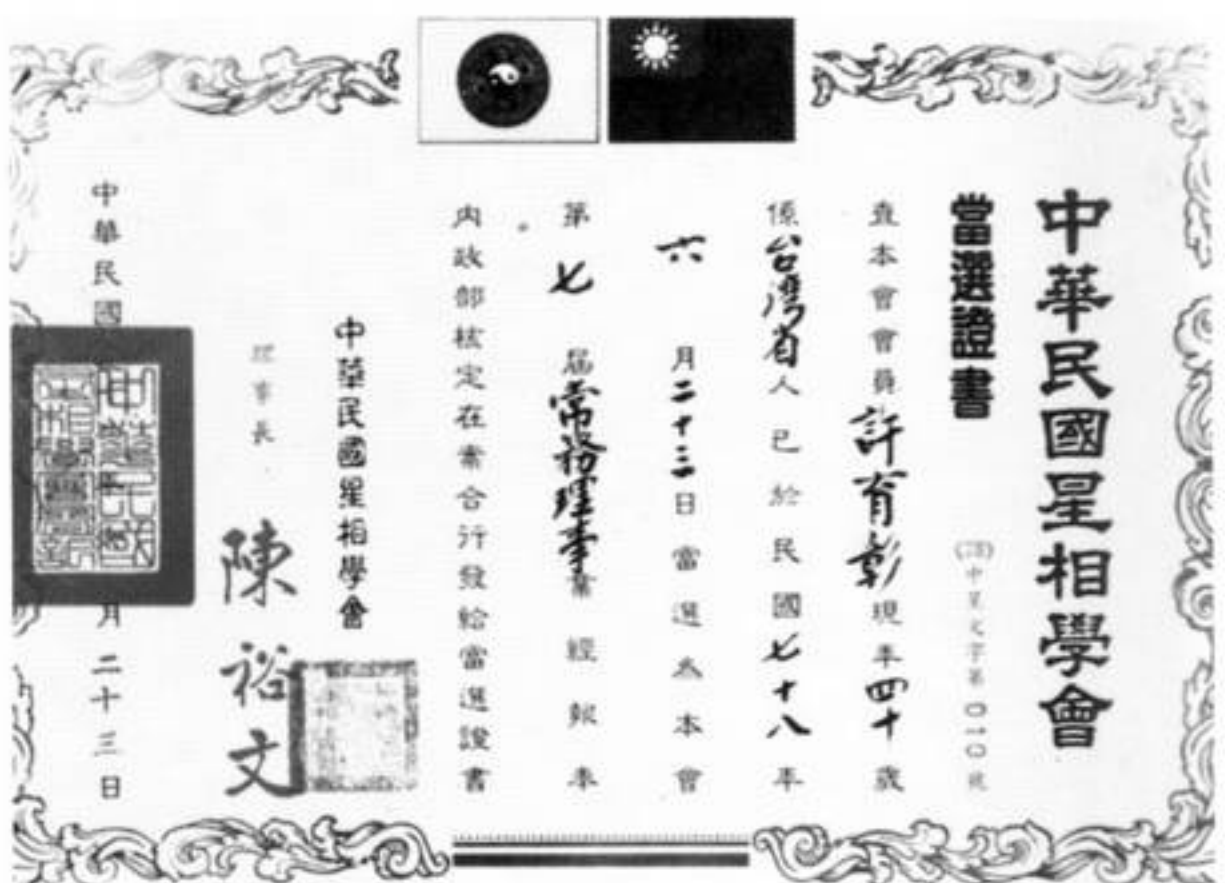 中華民國星相學會
當選證書
中星文字第〇一〇號
查本會會員許育彰現年四十歲
係台灣省人已於民國七十八年
六月二十三日當選為本會
第七屆常務理事業經報奉
內政部核定在案合行發給當選證書
中華民國星相學會
理事長 陳裕文
中華民國 月二十三日